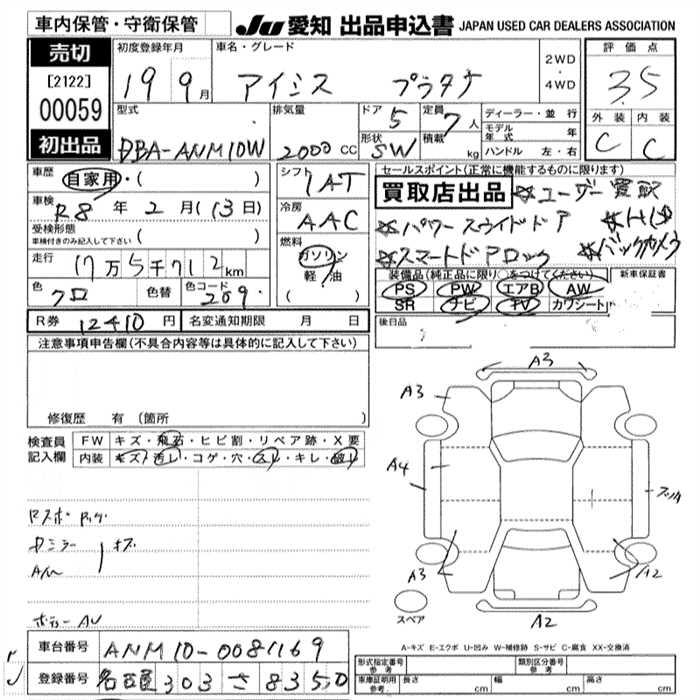 車内保管・守衛保管
JU 愛知 出品申込書 JAPAN USED CAR DEALERS ASSOCIATION
売切
[2122]
00059
初出品
初度登録年月
19 9月
車名・グレード
アイシス プラタナ
2WD
・
4WD
評価点
3.5
外装 内装
C C
型式
DBA-ANM10W
排気量
2000 CC
ドア 5
形状 SW
定員 7人
積載 kg
ディーラー・並行
モデル年式 年
ハンドル 左・右
車歴 自家用・( )
車検 R8年 2月(13日)
受検形態
車検付きのみ記入して下さい ( )
走行 17万5千712km
色 クロ 色替 色コード 209
シフト 1AT
冷房 AAC
燃料
ガソリン
軽油
セールスポイント(正常に機能するものに限ります)
買取店出品 ※ユーザー買取
※パワースライドドア ※HID
※スマートドアロック ※バックカメラ
装備品(純正品に限り○をつけてください)
PS PW エアB AW
SR ナビ TV カワシート
新車保証書
後日品
R券 12410円 名変通知期限 月 日
注意事項申告欄(不具合内容等は具体的に記入して下さい)
修復歴 有(箇所 )
検査員記入欄
FW キズ・飛石・ヒビ割・リペア跡・X要
内装 キズ・汚レ・コゲ・穴・スレ・キレ・破レ
ドミラー
キズ
A3
A3
A4
A3
A2
A2
スペア
A-キズ E-エクボ U-凹み W-補修跡 S-サビ C-腐食 XX-交換済
車台番号 ANM10-0081169
登録番号 名古屋 303 さ 8350
形式指定番号 参考
類別区分番号 参考
車庫証明用 参考 長さ cm 幅 cm 高さ cm